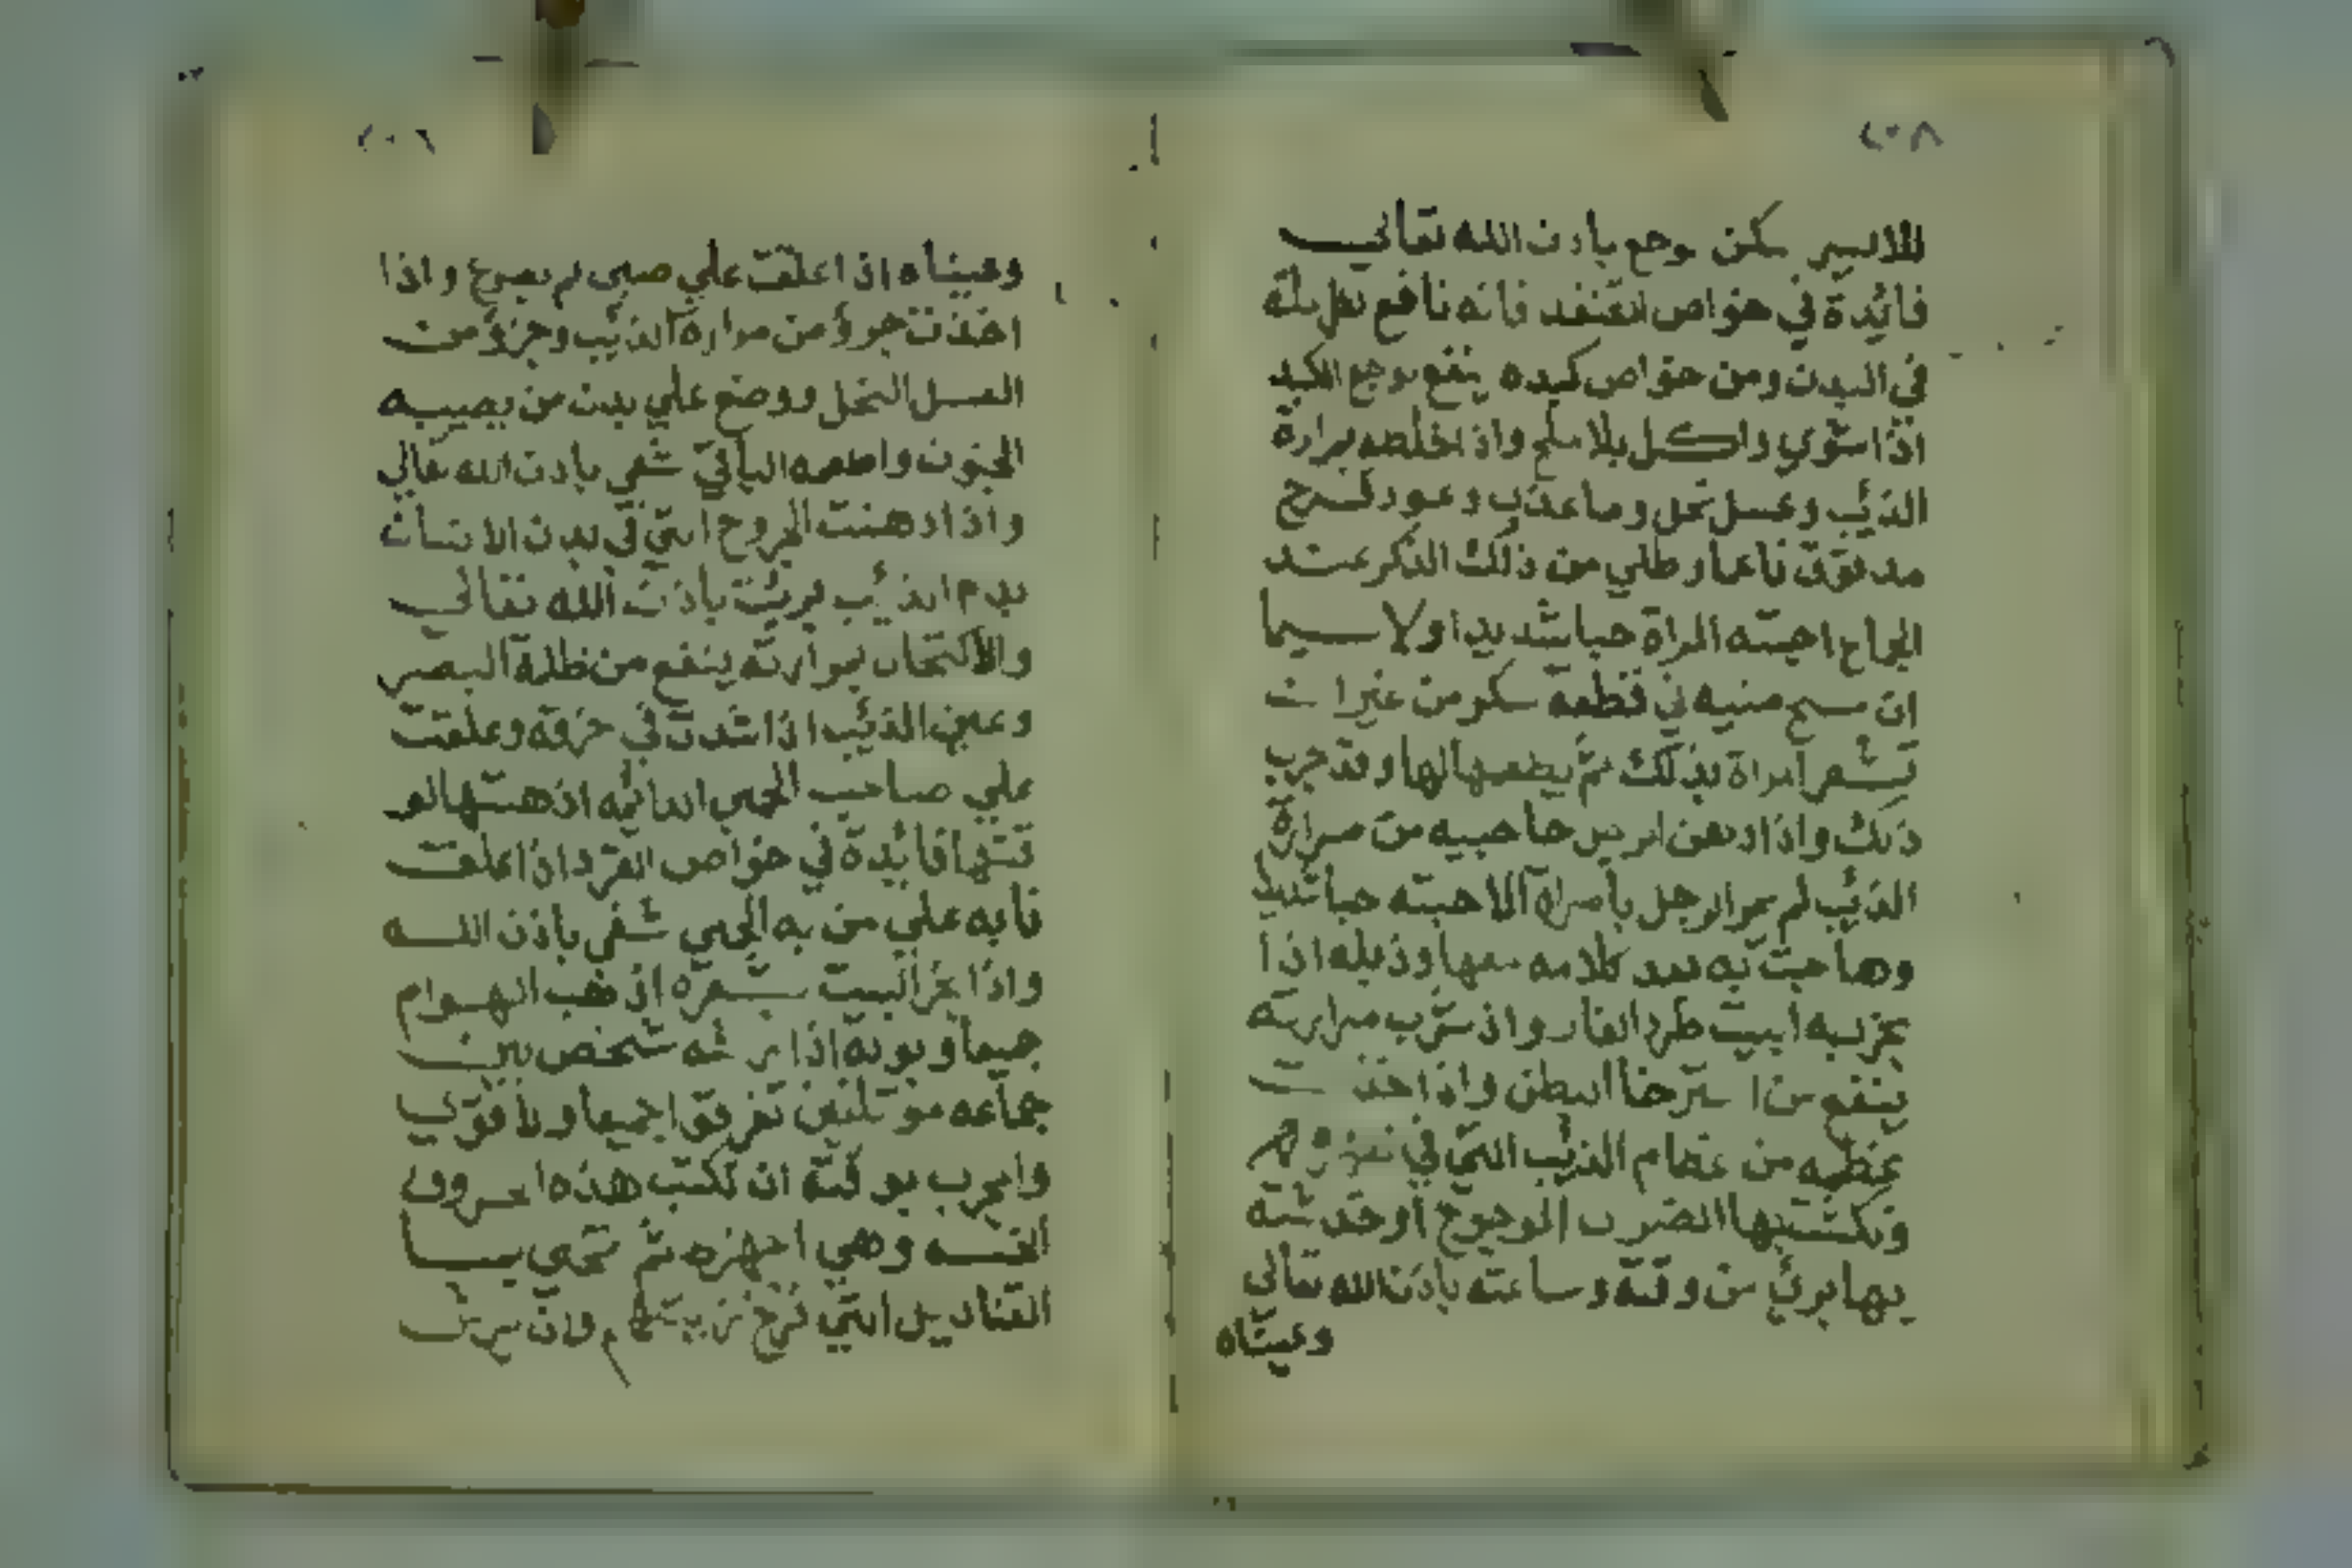 ٢٠٨
للايسر سكن وجع باذن الله تعالي
فائدة في خواص القنفد فانه نافع لكل علة
في البدن ومن خواص كبده ينفع لوجع الكبد
اذا استوي واكل بلا ملح واذا خلطه بمرارة
الذئب وعسل نحل وما عذب وعود
ناعما وطلي من ذلك الذكر عند
الجماع احبته المراة حبا شديدا ولا سيما
ان مسح منيه في قطعة سكر من غير ان
تشعر امراة بذلك ثم يطعمها لها وقد جرب
ذلك واذا دهن حاجبيه من مرارة
الذئب لم يمر الرجل بامراة الا احبته حبا شديدا
وهاجت به بعد كلامه معها وذيله اذا
بخر به البيت طرد الفار واذا شرب مرارته
ينفع من استرخا البطن واذا اخذت
عظمه من عظام الذئب التي في
ونكشت بها الضرب الموجوع او خدشته
بها برئ من وقته وساعته باذن الله تعالي
وعيناه
٢٠٩
وعيناه اذا علقت علي صبي لم يصرع واذا
اخذت جزؤ من مرارة الذئب وجزؤ من
العسل النحل ووضع علي بدن من يصيبه
الجنون واطعمه الباقي شفي باذن الله تعالي
واذا ادهنت الجروح التي في بدن الانسان
بدم الذئب بريت باذن الله تعالي
والاكتحال بمرارته ينفع من ظلمة البصر
وعين الذئب اذا شدت في خرقه وعلقت
علي صاحب الحمي الدائمه اذهبتها لو
قتها فائدة في خواص القرد اذا علقت
نابه علي من به الحمي شفي باذن الله
واذا بخر البيت بشعره اذهب الهوام
جميعا وبوله اذا رشه شخص بين
جماعه موتلفين تفرقوا جميعا ولا فوق
والمجرب بوقته ان تكتب هذه الحروف
الفـه وهي اجهزه ثم تمحي بما
القناديل التي وان